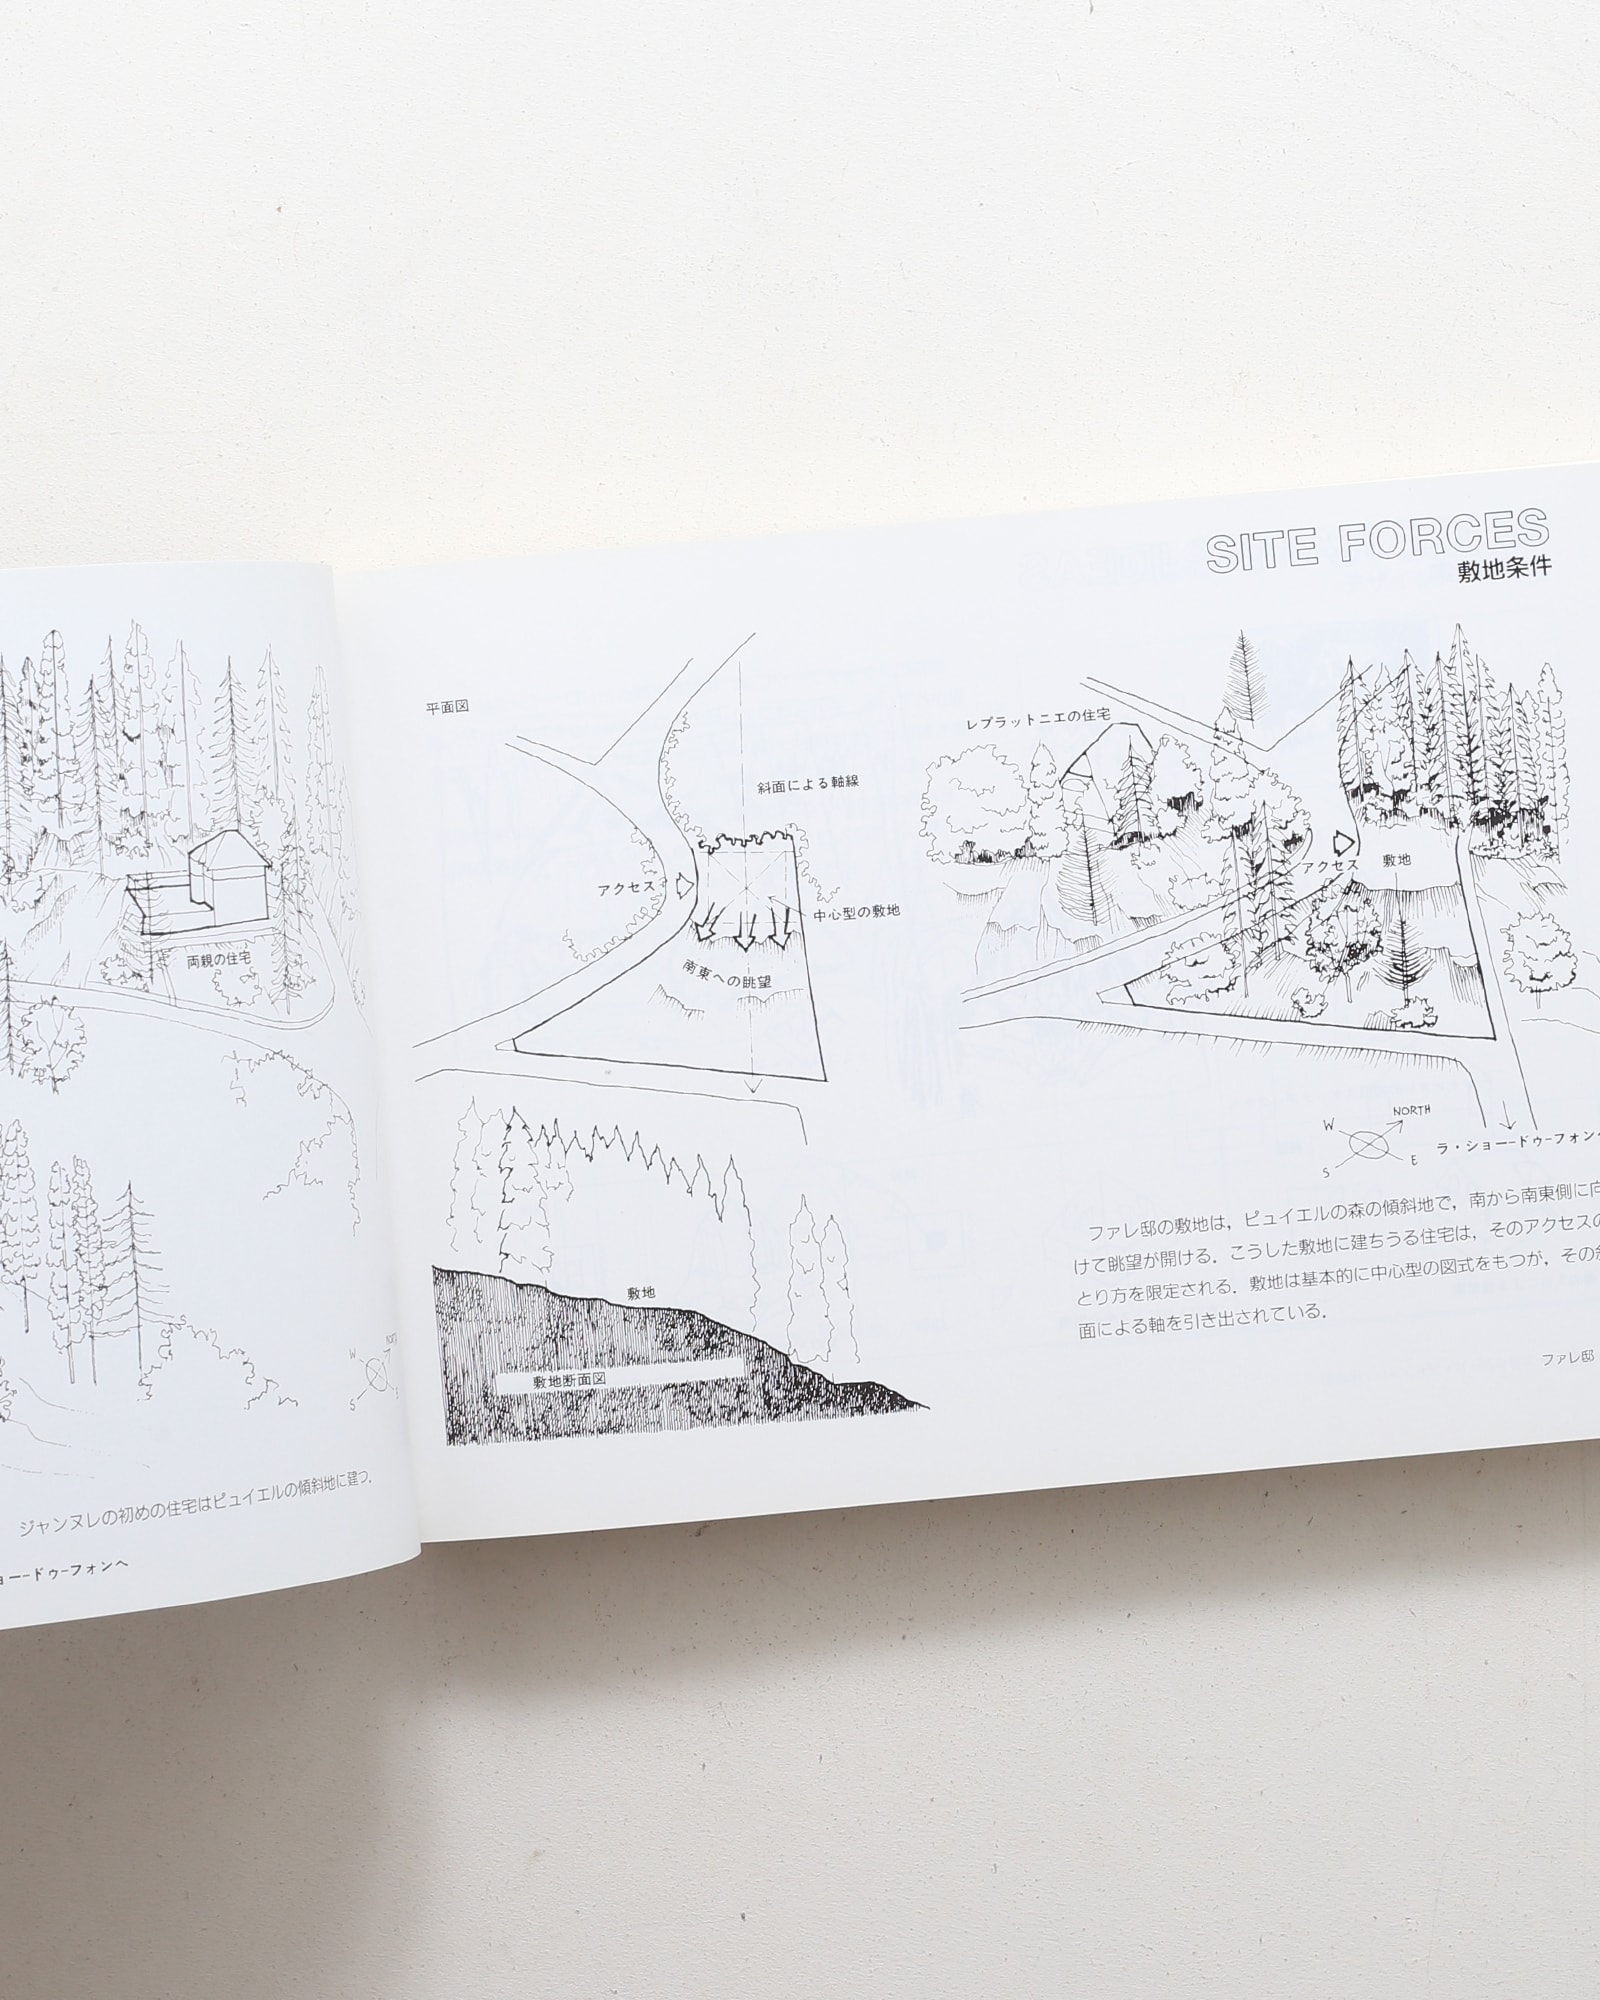 両親の住宅
W
S
ジャンヌレの初めの住宅はピュイエルの傾斜地に建つ.
ョー−ドゥ−フォンへ
SITE FORCES
敷地条件
平面図
斜面による軸線
アクセス
中心型の敷地
南東への眺望
敷地
敷地断面図
レプラットニエの住宅
アクセス
敷地
NORTH
W
S
E
ラ・ショー−ドゥ−フォン
ファレ邸の敷地は，ピュイエルの森の傾斜地で，南から南東側に向
けて眺望が開ける．こうした敷地に建ちうる住宅は，そのアクセスの
とり方を限定される．敷地は基本的に中心型の図式をもつが，その斜
面による軸を引き出されている．
ファレ邸